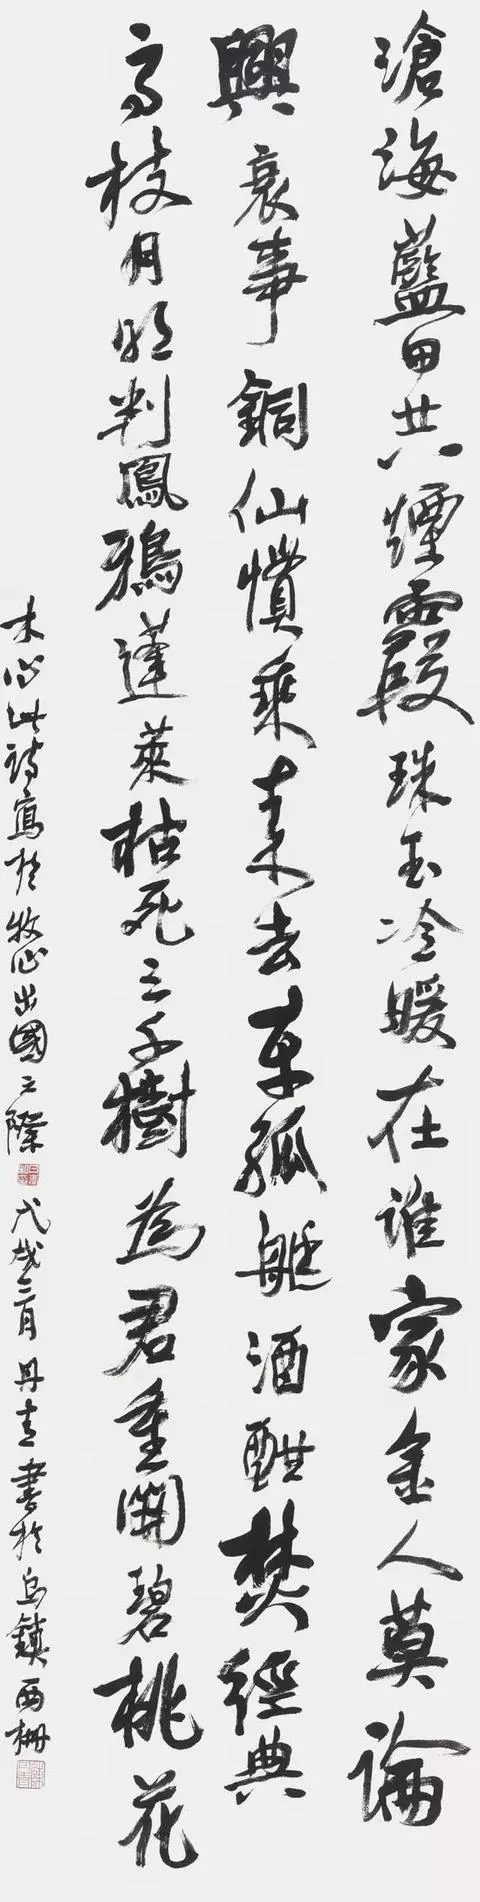 滄海藍田共煙霞珠玉冷暖在誰家金人莫論
興衰事銅仙慣乘来去車孤艇酒酣焚經典
高枝月明判鳳鴉蓬萊枯死三千樹為君重開碧桃花
木心此詩寫於牧心出國之際 戊戌三月 丹青書於烏鎮西柵